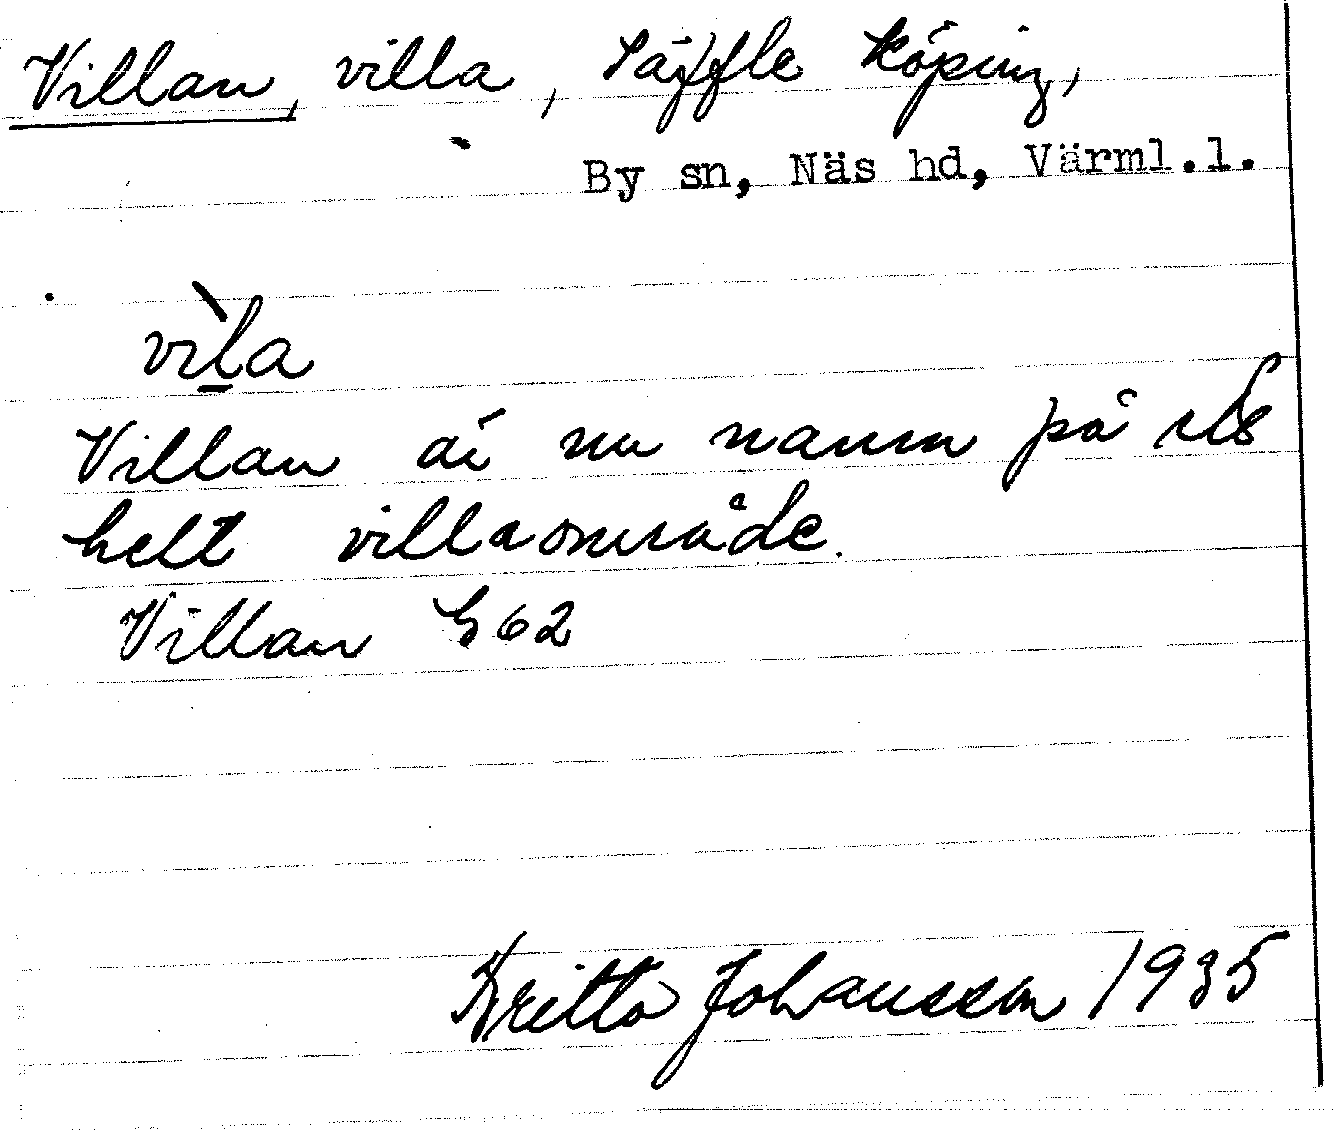 Villan, villa, Säffle köping,
By sn, Näs hd, Värml.l.
vìl̲a
Villan är nu namn på ett
helt villaområde.
Villan G62
Britta Johansson 1935